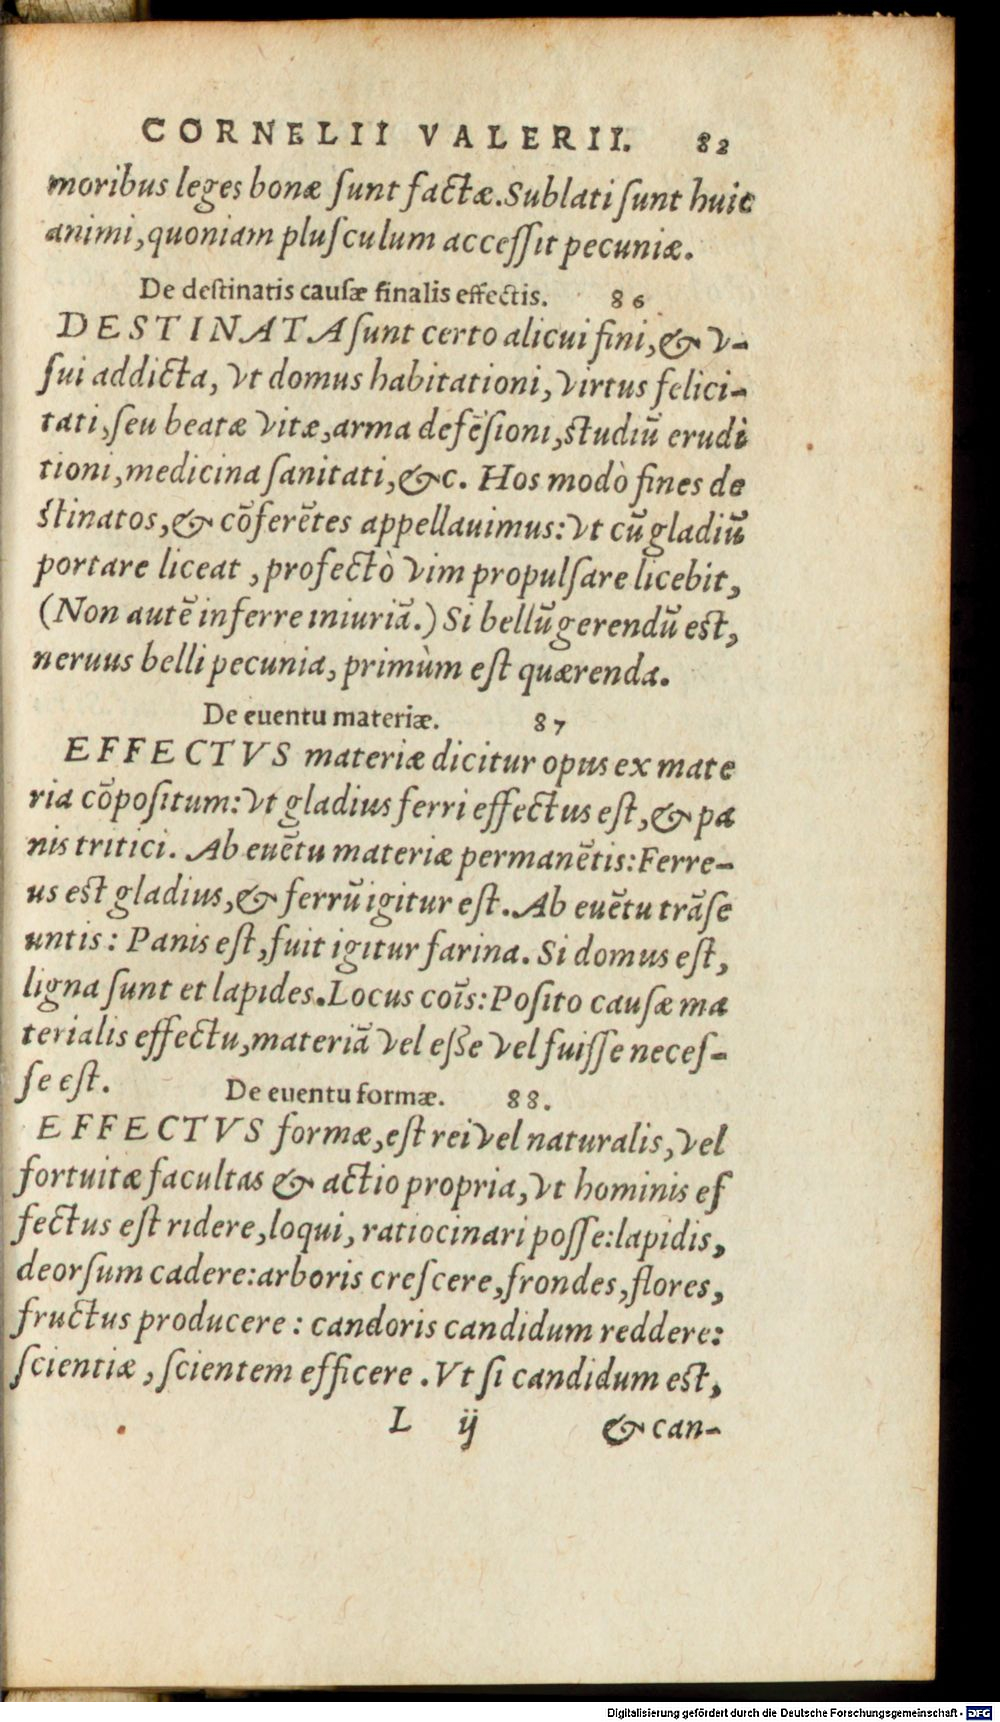 CORNELII VALERII. 82
moribus leges bonæ ſunt factæ. Sublati ſunt huic
animi, quoniam pluſculum acceſſit pecuniæ.
De deſtinatis cauſæ finalis effectis. 86
DESTINATA ſunt certo alicui fini, & v-
ſui addicta, vt domus habitationi, virtus felici-
tati, ſeu beatæ vitæ, arma defēſioni, ſtudiū erudi
tioni, medicina ſanitati, &c. Hos modò fines de
ſtinatos, & cōferētes appellauimus: vt cū gladiū
portare liceat, profectò vim propulſare licebit,
(Non autē inferre iniuriā.) Si bellū gerendū eſt,
neruus belli pecunia, primùm eſt quærenda.
De euentu materiæ. 87
EFFECTVS materiæ dicitur opus ex mate
ria cōpoſitum: vt gladius ferri effectus eſt, & pa
nis tritici. Ab euētu materiæ permanētis: Ferre-
us eſt gladius, & ferrū igitur eſt. Ab euētu trāſe
untis: Panis eſt, fuit igitur farina. Si domus eſt,
ligna ſunt et lapides. Locus coīs: Poſito cauſæ ma
terialis effectu, materiā vel eſſe vel fuiſſe neceſ-
ſe eſt.
De euentu formæ. 88.
EFFECTVS formæ, eſt rei vel naturalis, vel
fortuitæ facultas & actio propria, vt hominis ef
fectus eſt ridere, loqui, ratiocinari poſſe: lapidis,
deorſum cadere: arboris creſcere, frondes, flores,
fructus producere: candoris candidum reddere:
ſcientiæ, ſcientem efficere. Vt ſi candidum eſt,
L ij & can-
Digitalisierung gefördert durch die Deutsche Forschungsgemeinschaft - DFG